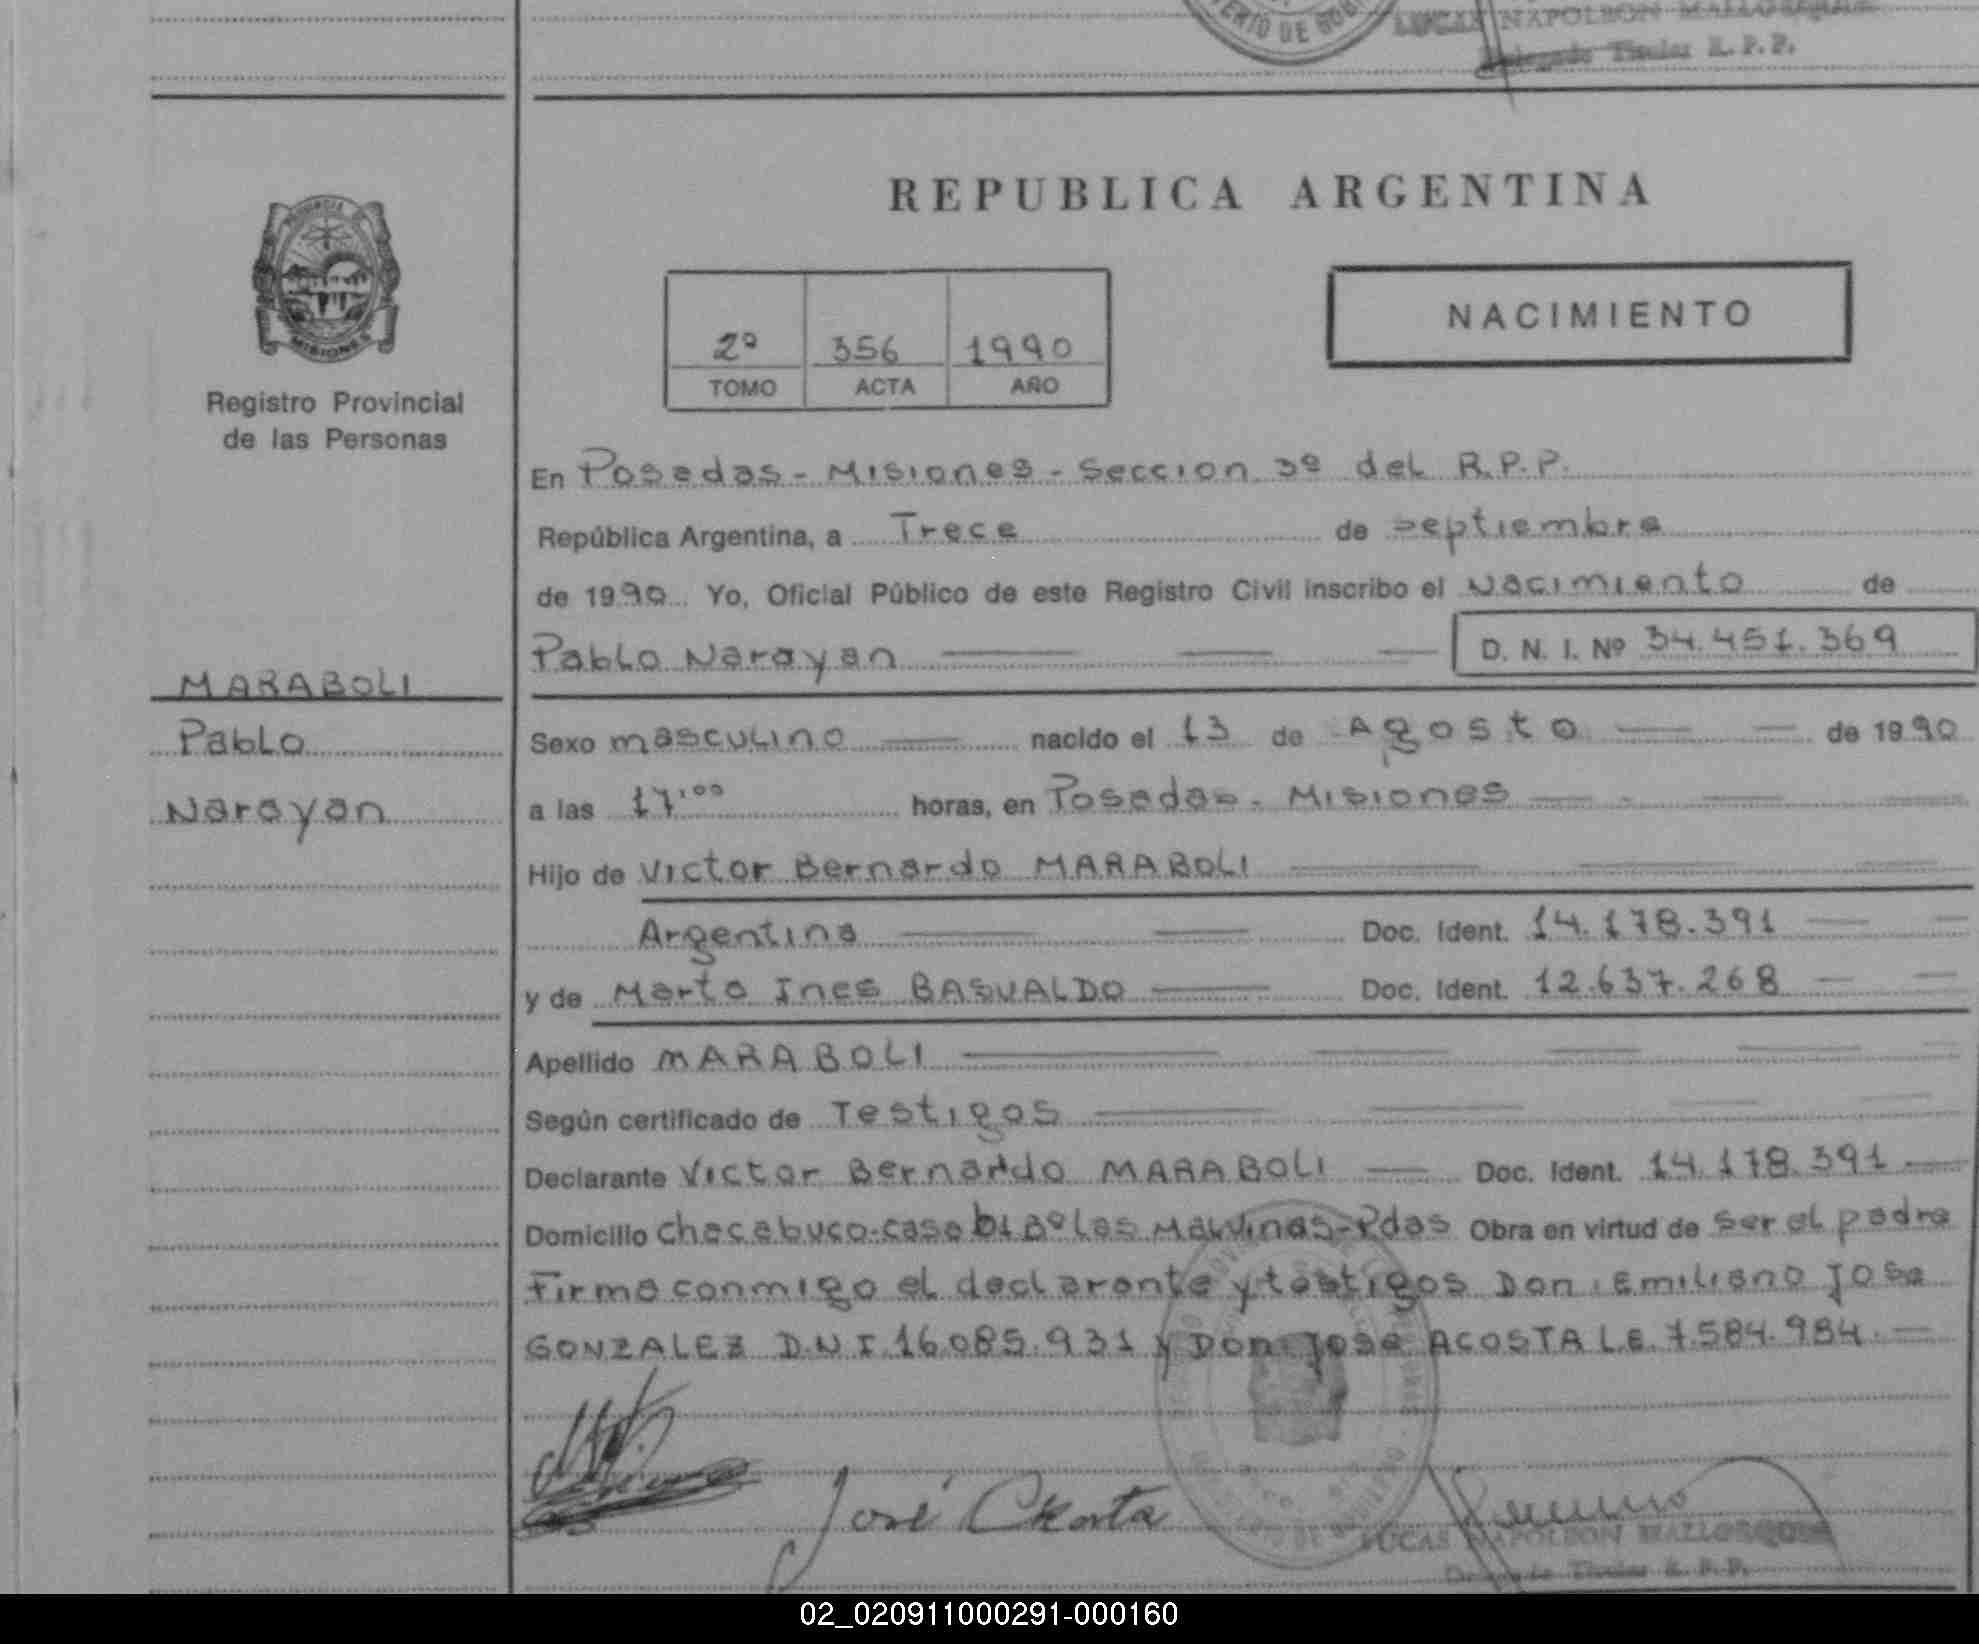 TERIO DE GOBI
LUCAS NAPOLEON MALLORQUIN
Delegado Titular R. P. P.
PROVINCIA DE
MISIONES
Registro Provincial
de las Personas
MARABOLI
Pablo
Narayan
REPUBLICA ARGENTINA
2º 356 1990
TOMO ACTA AÑO
NACIMIENTO
En Posadas - Misiones - Seccion 3º del R.P.P.
República Argentina, a Trece de septiembre
de 1990 Yo, Oficial Público de este Registro Civil inscribo el Nacimiento de
Pablo Narayan D. N. I. Nº 34.451.369
Sexo masculino nacido el 13 de Agosto de 1990
a las 17'00 horas, en Posadas - Misiones
Hijo de Victor Bernardo MARABOLI
Argentina Doc. Ident. 14.178.391
y de Marta Ines BASUALDO Doc. Ident. 12.637.268
Apellido MARABOLI
Según certificado de Testigos
Declarante Victor Bernardo MARABOLI Doc. Ident. 14.178.391
Domicilio Chacabuco-casa b1 Bº Las Malvinas-Pdas Obra en virtud de ser el padre
Firma conmigo el declarante y testigos Don Emiliano Jose
GONZALEZ D.N.I 16.085.931 y Don Jose ACOSTA L.E. 7.584.984.-
José Acosta
LUCAS NAPOLEON MALLORQUIN
Delegado Titular R. P. P.
02_020911000291-000160